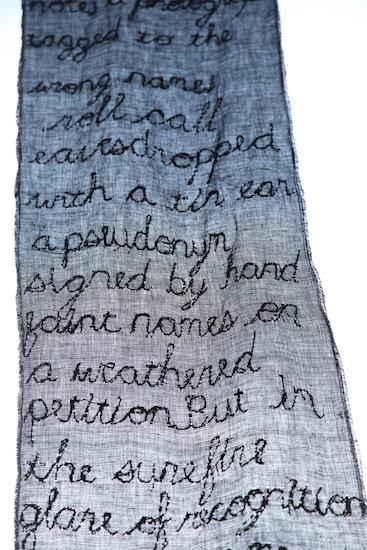 notes a
tagged to the
wrong names
roll call
eavesdropped
with a tin ear
a psudonym
signed by hand
faint names on
a weathered
petition But in
the surefire
glare of recognition